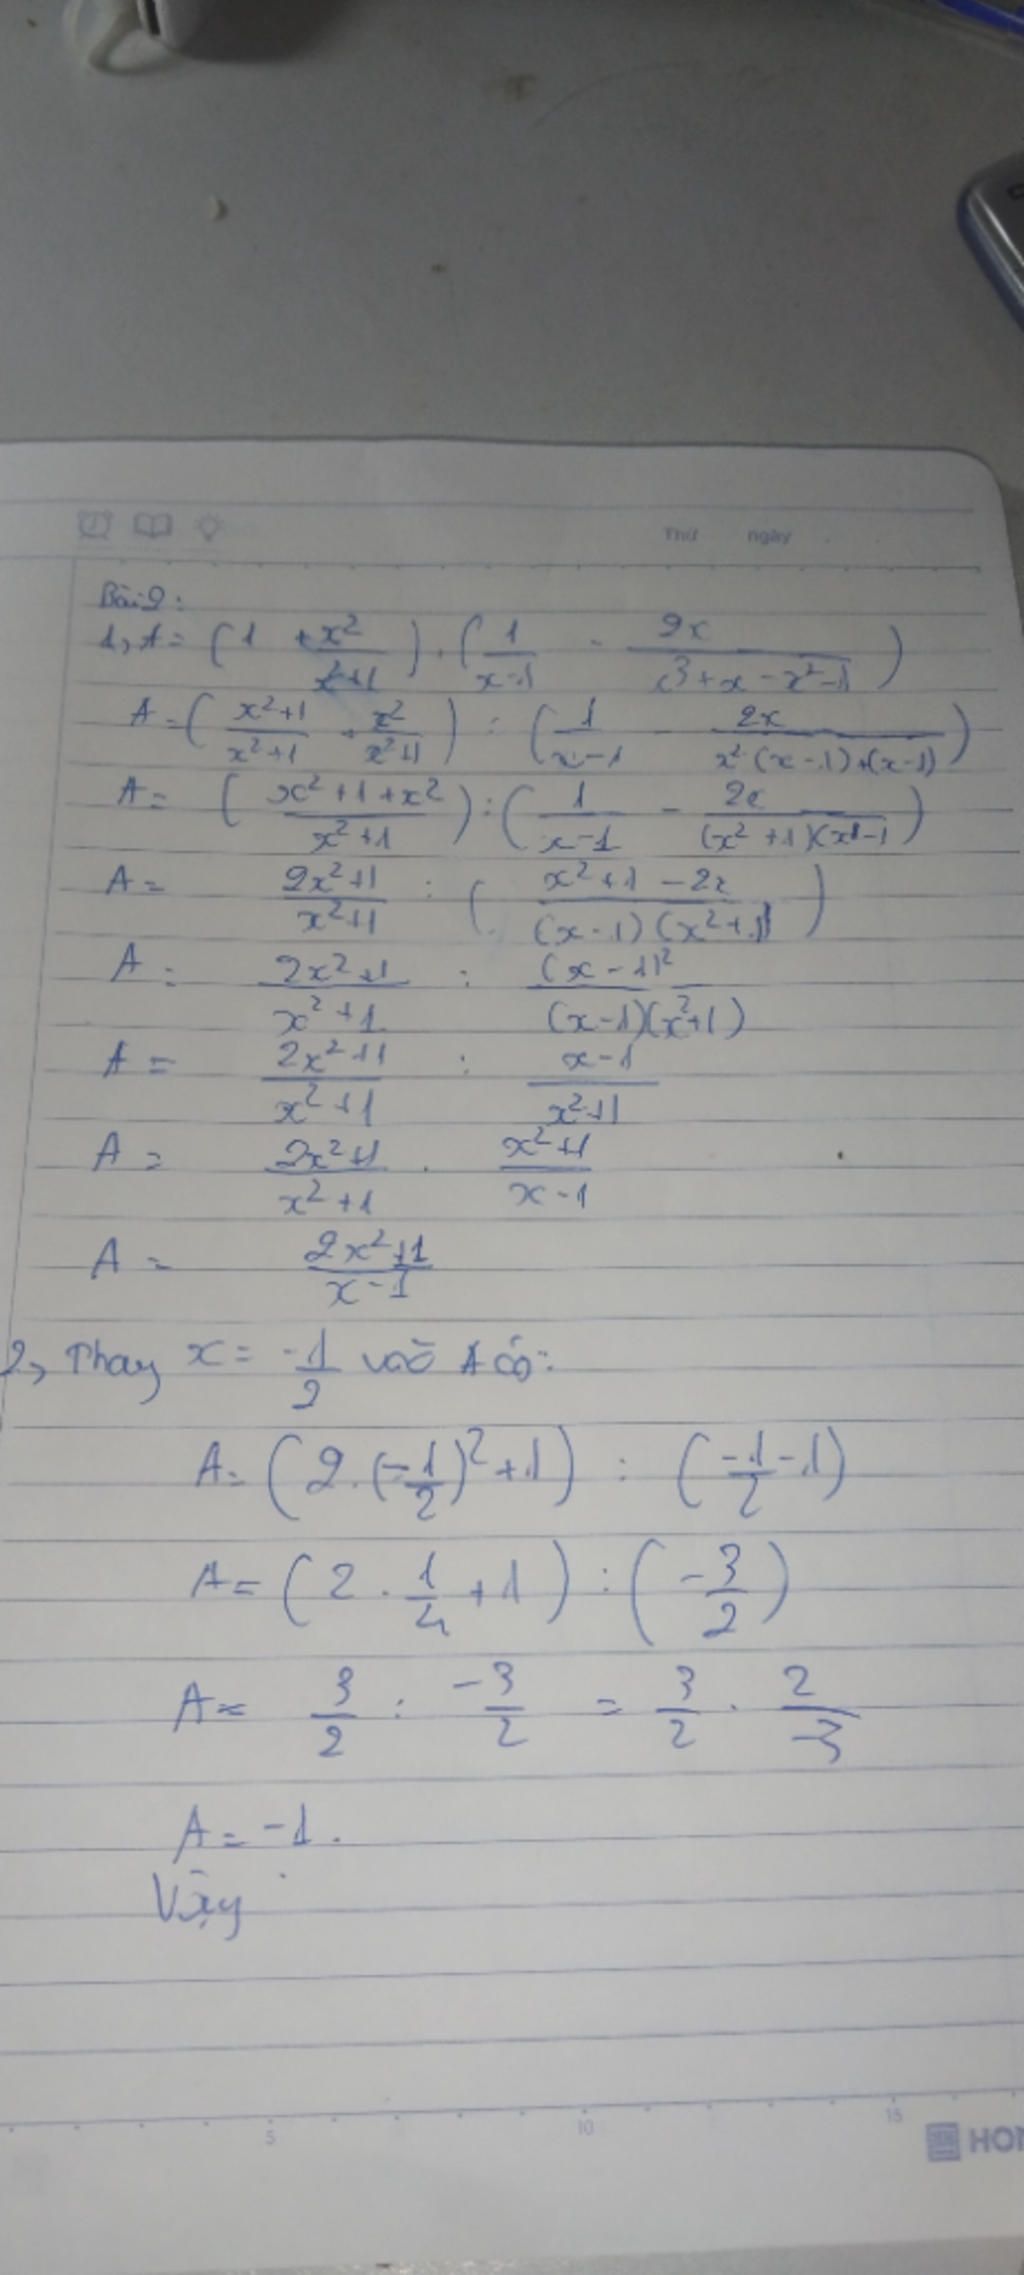 Thứ ngày
Bài 2:
1, A = (1 + x²/x²+1) : (1/x-1 - 2x/x³+x-x²-1)
A = (x²+1/x²+1 + x²/x²+1) : (1/x-1 - 2x/x².(x-1)+(x-1))
A = (x²+1+x²/x²+1) : (1/x-1 - 2x/(x²+1)(x-1))
A = 2x²+1/x²+1 : (x²+1-2x/(x-1)(x²+1))
A = 2x²+1/x²+1 : (x-1)²/(x-1)(x²+1)
A = 2x²+1/x²+1 : x-1/x²+1
A = 2x²+1/x²+1 . x²+1/x-1
A = 2x²+1/x-1
2, Thay x = -1/2 vào A có:
A = (2.(-1/2)²+1) : (-1/2-1)
A = (2.1/4+1) : (-3/2)
A = 3/2 : -3/2 = 3/2 . 2/-3
A = -1.
Vậy
5 10 15
HON